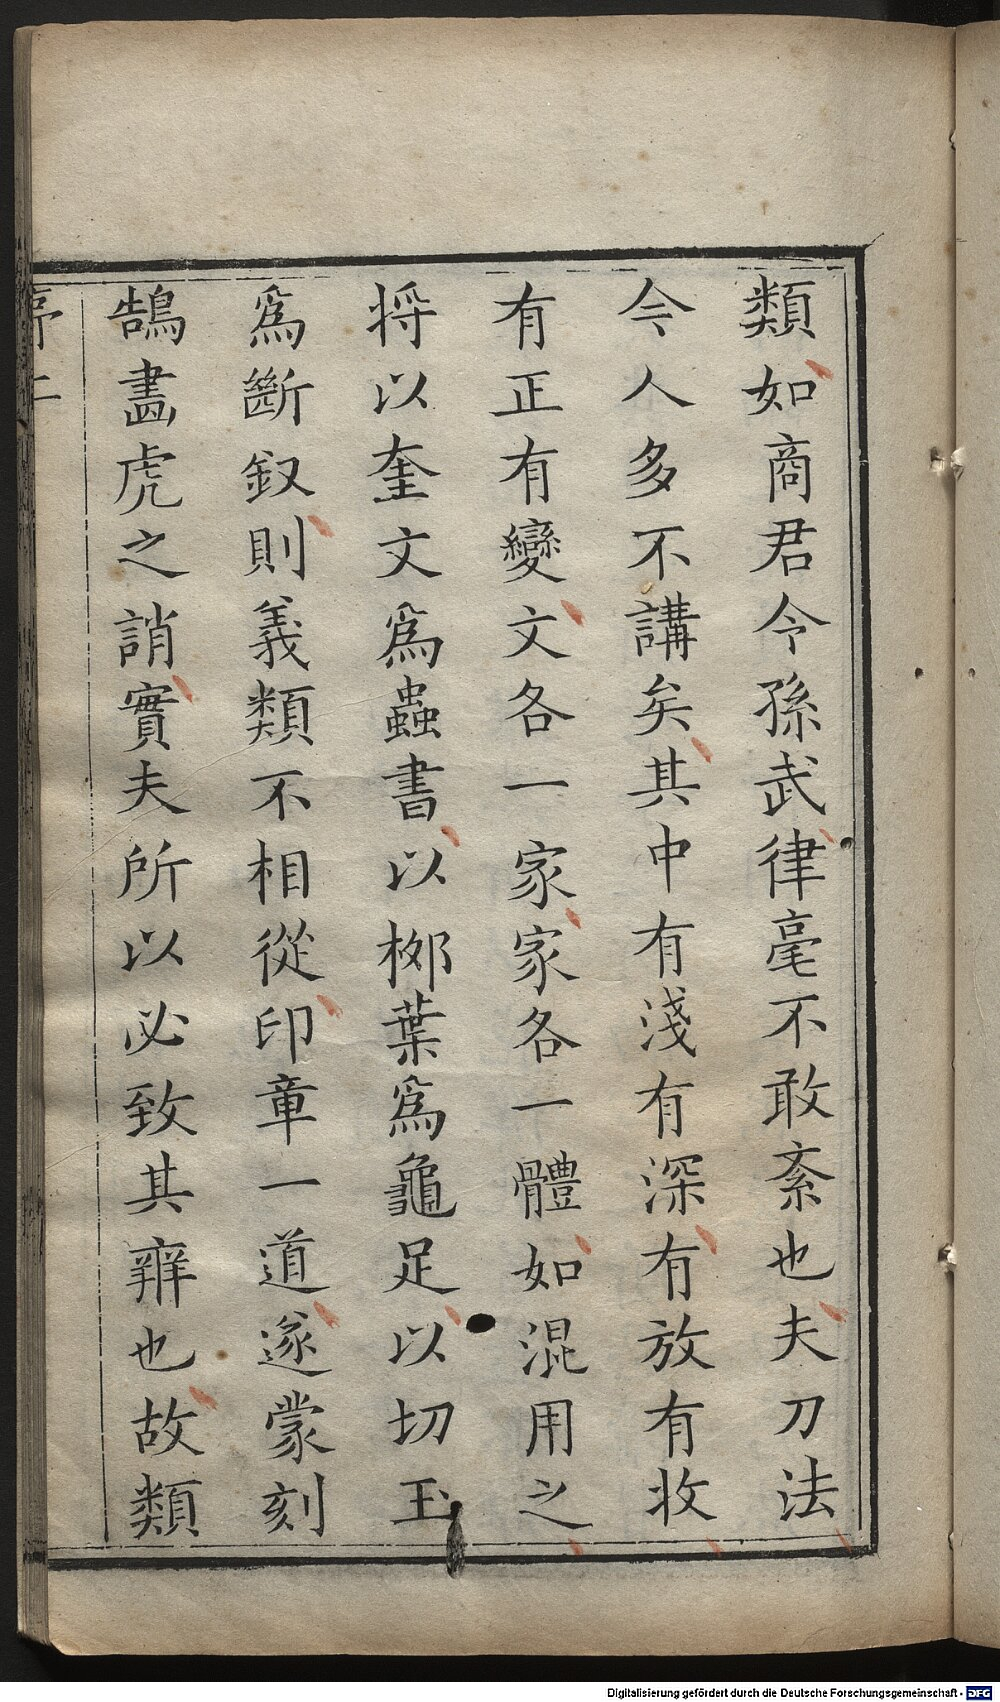 類如商君令孫武律毫不敢紊也夫刀法
今人多不講矣其中有淺有深有放有收
有正有變文各一家家各一體如混用之
将以奎文爲蟲書以桞葉爲龜足以切玉
爲斷釵則義類不相從印章一道遂蒙刻
鵠畫虎之誚實夫所以必致其辨也故類
序二
Digitalisierung gefördert durch die Deutsche Forschungsgemeinschaft - DFG